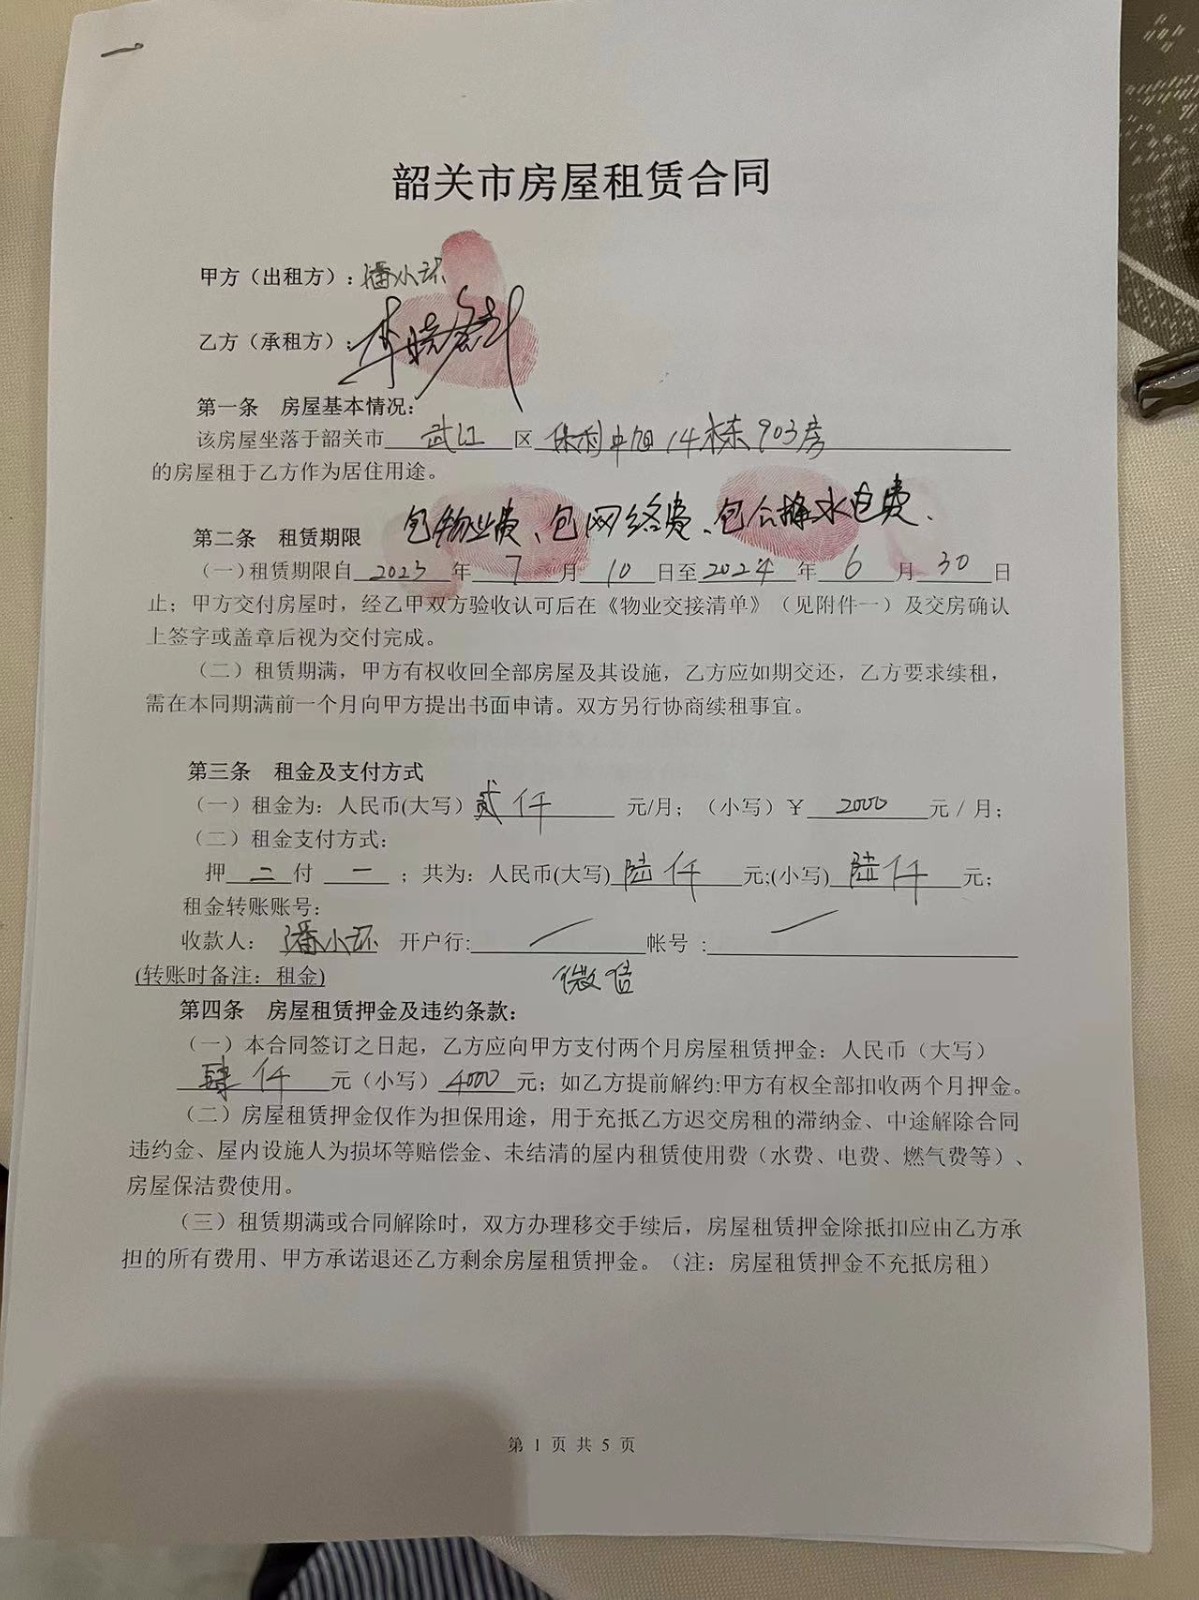 韶关市房屋租赁合同
甲方（出租方）：潘小环
乙方（承租方）：李
第一条 房屋基本情况：
该房屋坐落于韶关市 武江 区 保利中旭14栋903房
的房屋租于乙方作为居住用途。
包物业费、包网络费、包公摊水电费、
第二条 租赁期限
（一）租赁期限自 2023 年 7 月 10 日至 2024 年 6 月 30 日
止；甲方交付房屋时，经乙甲双方验收认可后在《物业交接清单》（见附件一）及交房确认
上签字或盖章后视为交付完成。
（二）租赁期满，甲方有权收回全部房屋及其设施，乙方应如期交还，乙方要求续租，
需在本同期满前一个月向甲方提出书面申请。双方另行协商续租事宜。
第三条 租金及支付方式
（一）租金为：人民币(大写) 贰仟 元/月；（小写）￥ 2000 元／月；
（二）租金支付方式：
押 二 付 一 ；共为：人民币(大写) 陆仟 元;(小写) 陆仟 元；
租金转账账号：
收款人： 潘小环 开户行: 帐号 :
(转账时备注：租金) 微信
第四条 房屋租赁押金及违约条款：
（一）本合同签订之日起，乙方应向甲方支付两个月房屋租赁押金：人民币（大写）
肆仟 元（小写） 4000 元；如乙方提前解约:甲方有权全部扣收两个月押金。
（二）房屋租赁押金仅作为担保用途，用于充抵乙方迟交房租的滞纳金、中途解除合同
违约金、屋内设施人为损坏等赔偿金、未结清的屋内租赁使用费（水费、电费、燃气费等）、
房屋保洁费使用。
（三）租赁期满或合同解除时，双方办理移交手续后，房屋租赁押金除抵扣应由乙方承
担的所有费用、甲方承诺退还乙方剩余房屋租赁押金。（注：房屋租赁押金不充抵房租）
第 1 页 共 5 页